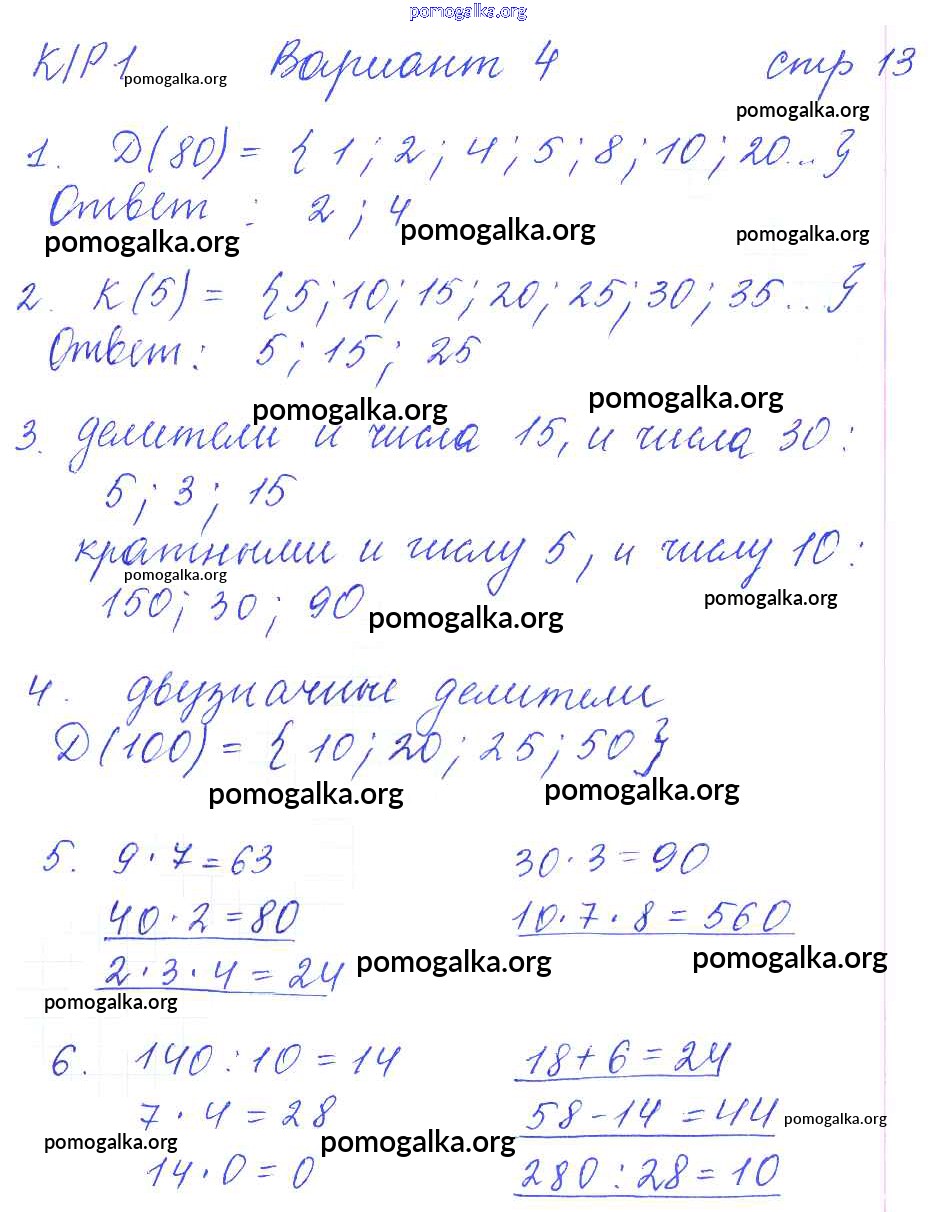 pomogalka.org
К/Р 1 Вариант 4 стр 13
pomogalka.org
pomogalka.org
1. D(80) = { 1; 2; 4; 5; 8; 10; 20...}
Ответ : 2; 4
pomogalka.org pomogalka.org pomogalka.org
2. K(5) = {5; 10; 15; 20; 25; 30; 35...}
Ответ: 5; 15; 25
pomogalka.org pomogalka.org
3. делители и числа 15, и числа 30:
5; 3; 15
кратными и числу 5, и числу 10:
pomogalka.org
150; 30; 90
pomogalka.org pomogalka.org
4. двузначные делители
D(100) = { 10; 20; 25; 50}
pomogalka.org pomogalka.org
5. 9 · 7 = 63 30 · 3 = 90
40 · 2 = 80 10 · 7 · 8 = 560
2 · 3 · 4 = 24 pomogalka.org pomogalka.org
pomogalka.org
6. 140 : 10 = 14 18 + 6 = 24
7 · 4 = 28 58 - 14 = 44 pomogalka.org
pomogalka.org pomogalka.org
14 · 0 = 0 280 : 28 = 10